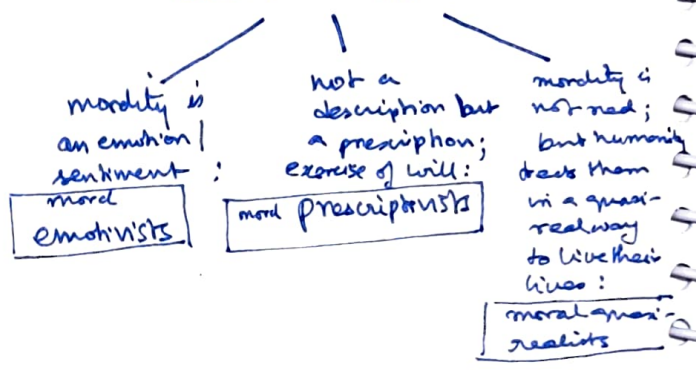 morality is
an emotion/
sentiment :
moral
emotivists
not a
description but
a prescription;
exercise of will:
moral prescriptivists
morality is
not real;
but humanity
treats them
in a quasi-
real way
to live their
lives :
moral quasi-
realists